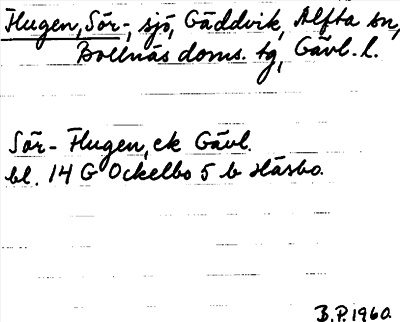 Flugen, Sör-, sjö, Gäddvik, Alfta sn,
Bollnäs doms. tg, Gävl. l.
Sör-Flugen, ek Gävl.
bl. 14 G Ockelbo 5 b Häsbo.
B.P. 1960